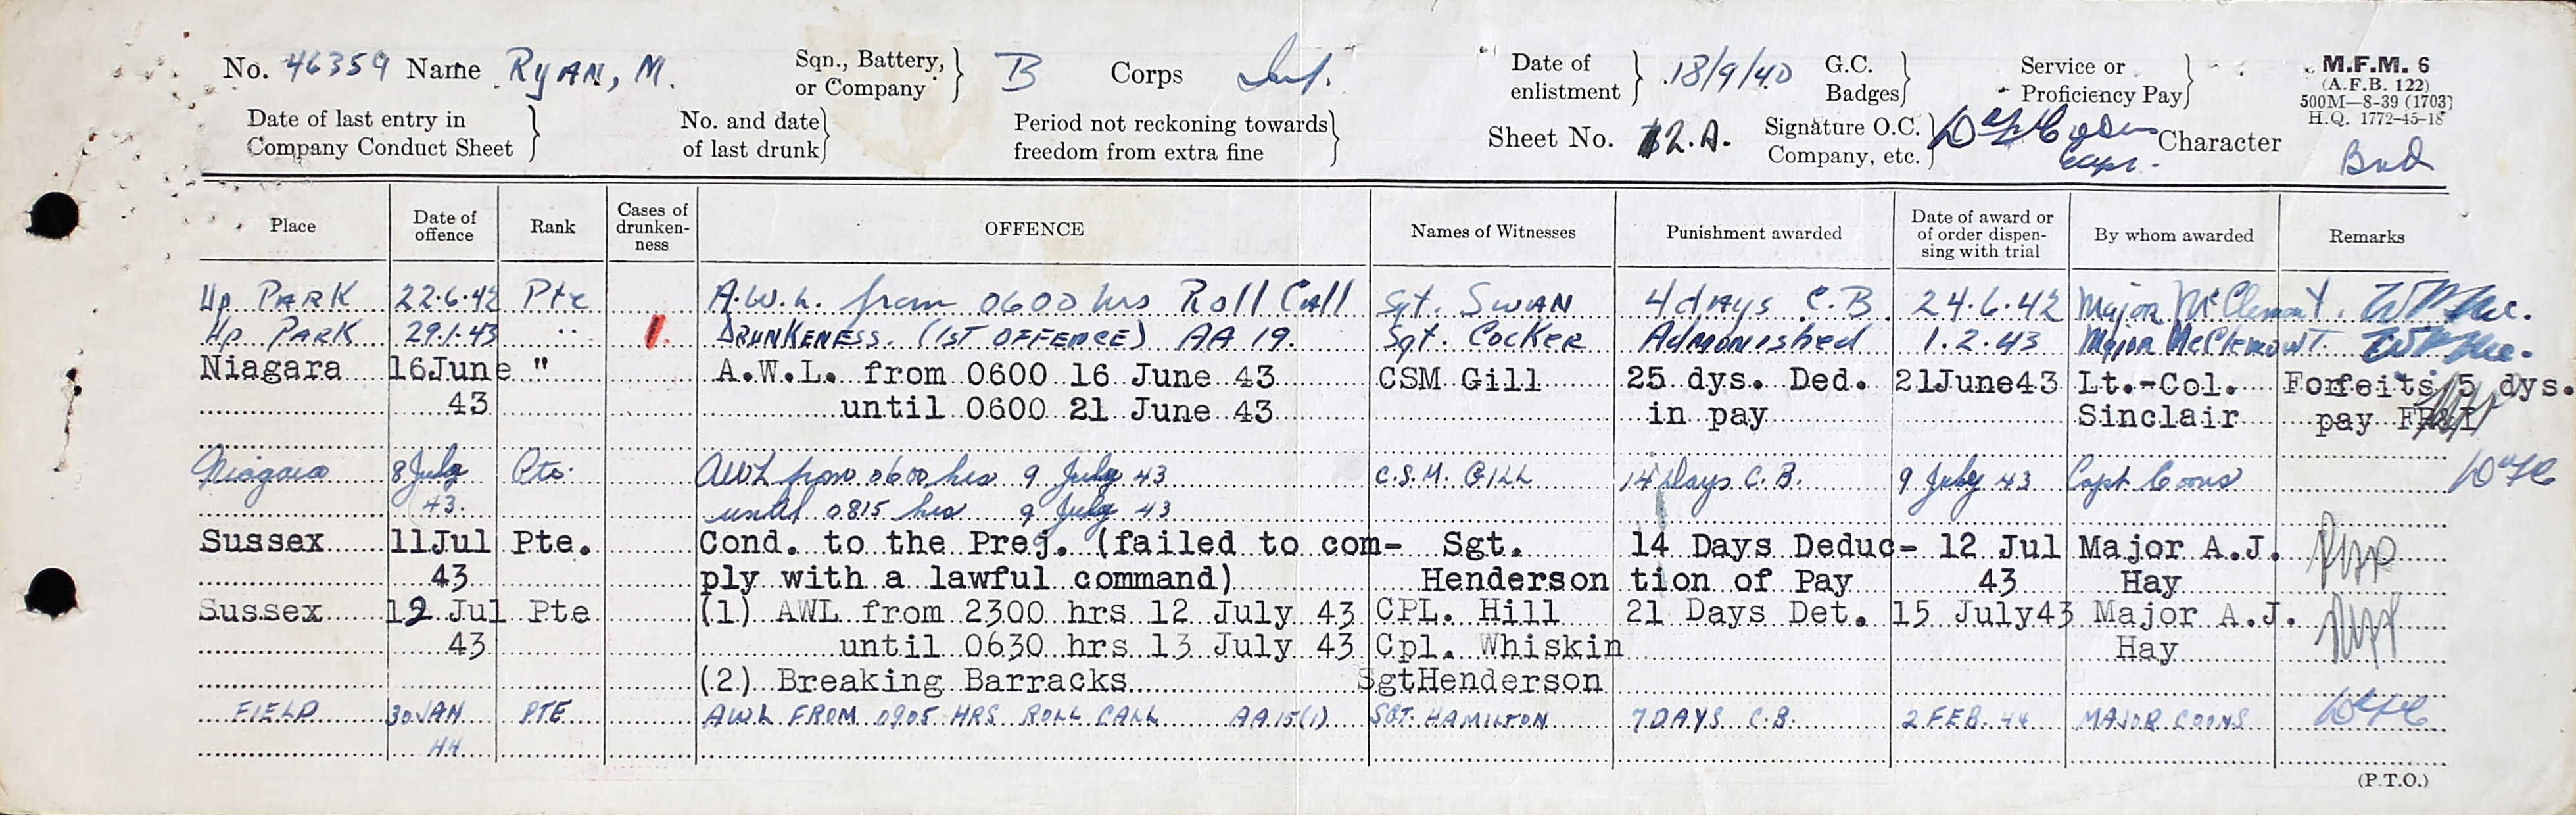 No. 46359 Name Ryan, M. Sqn., Battery, or Company } B Corps Inf. Date of enlistment } 18/9/40 G.C. Badges } Service or Proficiency Pay } M.F.M. 6
(A.F.B. 122)
500M—8-39 (1703)
H.Q. 1772-45-18
Date of last entry in Company Conduct Sheet } No. and date of last drunk } Period not reckoning towards freedom from extra fine } Sheet No. 2.A. Signature O.C. Company, etc. } Capt. Character Bad
Place Date of offence Rank Cases of drunken-ness OFFENCE Names of Witnesses Punishment awarded Date of award or of order dispen-sing with trial By whom awarded Remarks
Up PARK 22.6.42 Pte A.W.L. from 0600 hrs Roll Call Sgt. SWAN 4 days C.B. 24.6.42 Major McClemont.
Up PARK 29.1.43 " 1. DRUNKENESS. (1ST OFFENCE) AA 19. Sgt. COCKER Admonished 1.2.43 Major McClemonT.
Niagara 16June " A.W.L. from 0600 16 June 43 CSM Gill 25 dys. Ded. 21June43 Lt.-Col. Forfeits 5 dys.
43 until 0600 21 June 43 in pay Sinclair pay FR&I
Niagara 8 July Pte. AWL from 0600 hrs 9 July 43 C.S.M. GILL 14 Days C.B. 9 July 43 Capt Coons
43. until 0815 hrs 9 July 43
Sussex 11Jul Pte. Cond. to the Prej. (failed to com- Sgt. 14 Days Deduc- 12 Jul Major A.J.
43 ply with a lawful command) Henderson tion of Pay 43 Hay
Sussex 12 Jul Pte (1) AWL from 2300 hrs 12 July 43 CPL. Hill 21 Days Det. 15 July43 Major A.J.
43 until 0630 hrs 13 July 43 Cpl. Whiskin Hay
(2) Breaking Barracks SgtHenderson
FIELD 30 JAN PTE AWL FROM 0905 HRS ROLL CALL AA15(1) SGT. HAMILTON 7 DAYS C.B. 2 FEB. 44 MAJOR COONS
44
(P.T.O.)